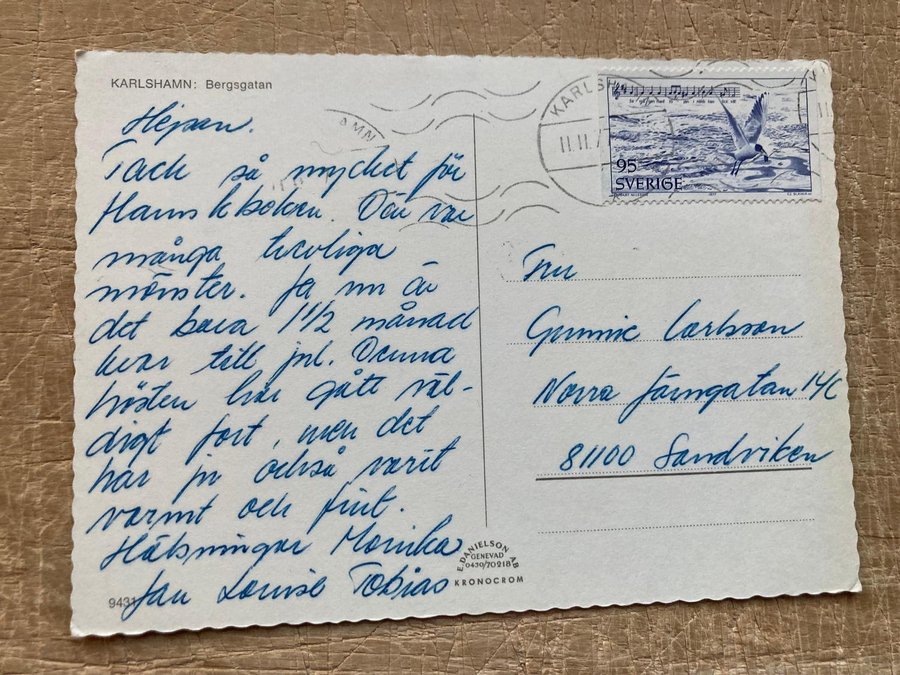 KARLSHAMN: Bergsgatan
Hejsan.
Tack så mycket för
Hamskboken. Den var
många trevliga
mönster. Ja nu är
det bara 1 1/2 månad
kvar till jul. Denna
hösten har gått väl-
digt fort, men det
har ju också varit
varmt och fint.
Hälsningar Monika
Jan Louise Tobias
9431
KARLSH
11.11.7
AMN
95
SVERIGE
Fru
Gunnie Carlsson
Norra Järngatan 14C
81100 Sandviken
E. DANIELSON AB
GENEVAD
0430/70218
KRONOCROM